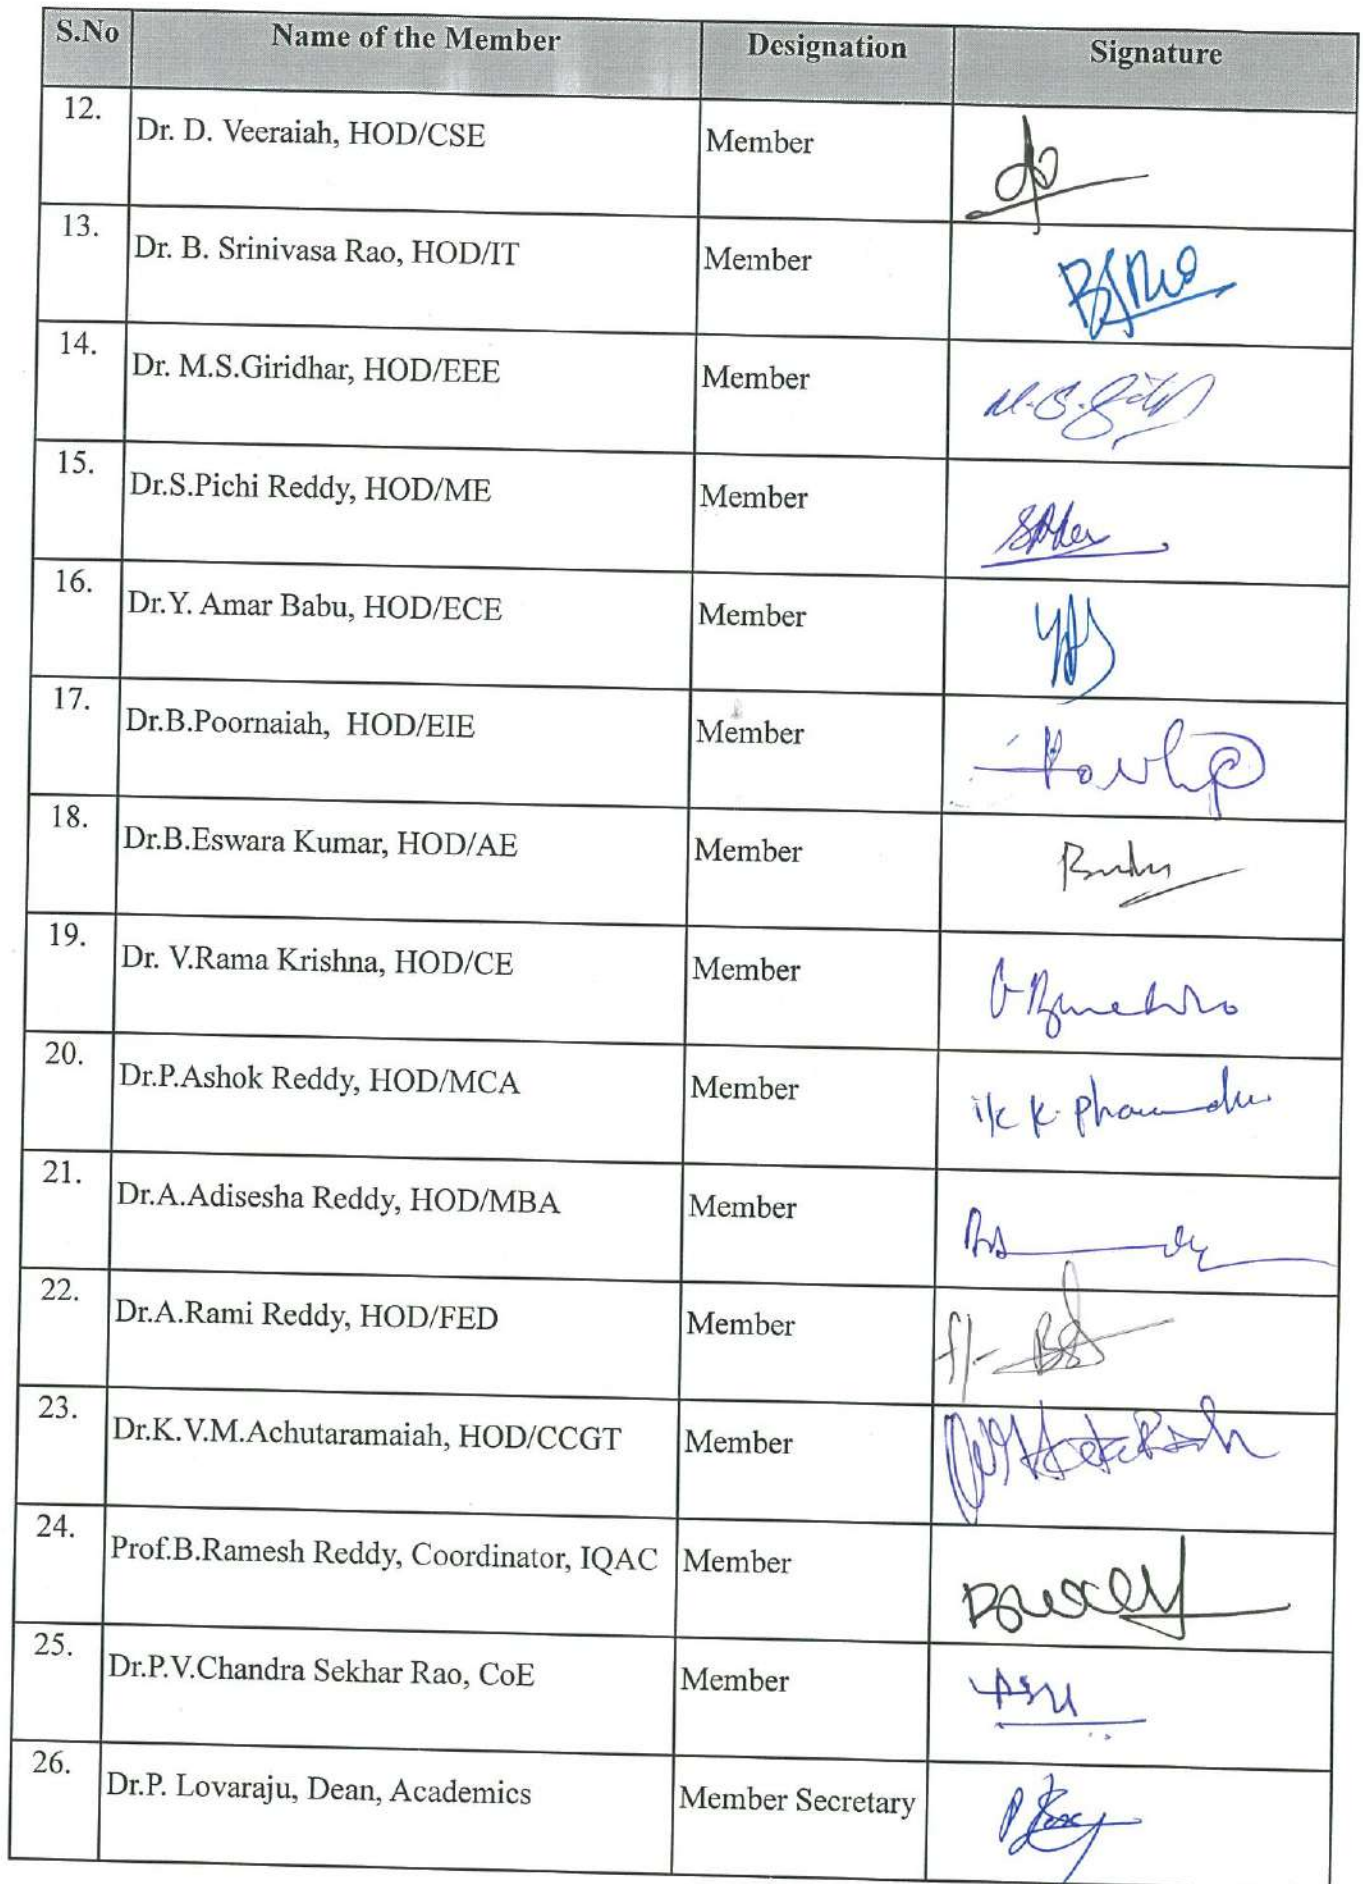 S.No Name of the Member Designation Signature
12. Dr. D. Veeraiah, HOD/CSE Member
13. Dr. B. Srinivasa Rao, HOD/IT Member
14. Dr. M.S.Giridhar, HOD/EEE Member
15. Dr.S.Pichi Reddy, HOD/ME Member
16. Dr.Y. Amar Babu, HOD/ECE Member
17. Dr.B.Poornaiah, HOD/EIE Member
18. Dr.B.Eswara Kumar, HOD/AE Member
19. Dr. V.Rama Krishna, HOD/CE Member
20. Dr.P.Ashok Reddy, HOD/MCA Member
21. Dr.A.Adisesha Reddy, HOD/MBA Member
22. Dr.A.Rami Reddy, HOD/FED Member
23. Dr.K.V.M.Achutaramaiah, HOD/CCGT Member
24. Prof.B.Ramesh Reddy, Coordinator, IQAC Member
25. Dr.P.V.Chandra Sekhar Rao, CoE Member
26. Dr.P. Lovaraju, Dean, Academics Member Secretary